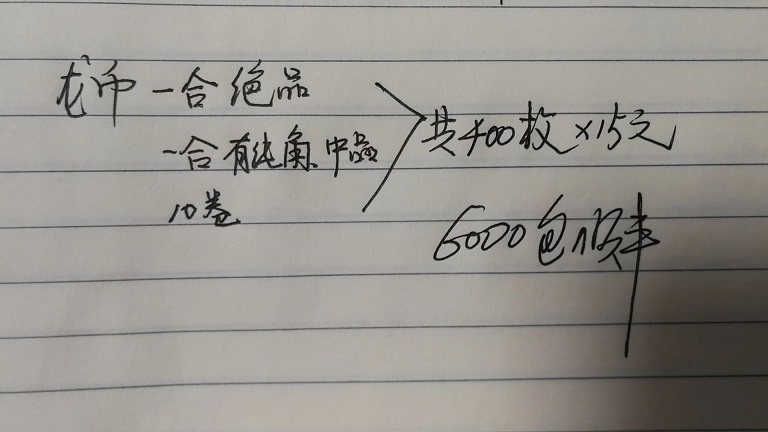 龙币 一合绝品
一合有钝角中品
10卷
共400枚×15元
6000包顺丰